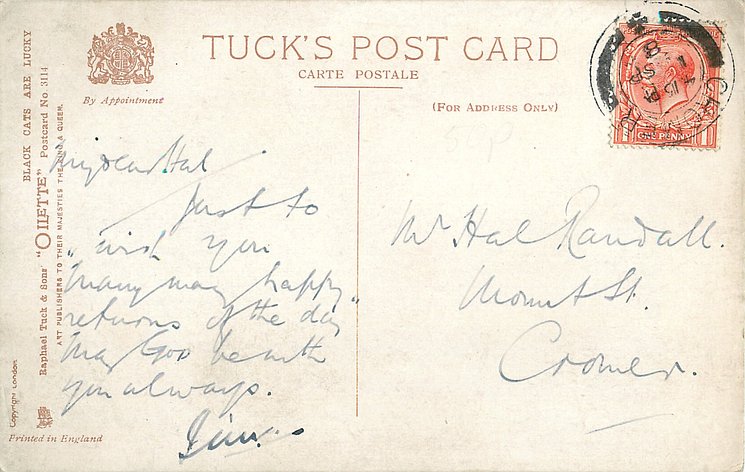 TUCK'S POST CARD
CARTE POSTALE
By Appointment
(FOR ADDRESS ONLY)
BLACK CATS ARE LUCKY
"OILETTE" Postcard No. 3114
Raphael Tuck & Sons'
ART PUBLISHERS TO THEIR MAJESTIES THE KING & QUEEN.
Copyright London
Printed in England
My dear Hal
Just to
"wish you
Many many happy
returns of the day"
May God be with
you always.
Jim.
Mr Hal Randall.
Mount St.
Cromer.
CROMER
4.15 PM
1 SP
ONE PENNY